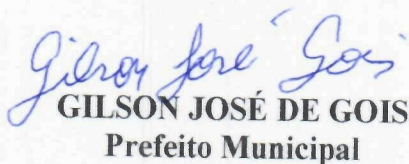 Gilson José Gois
GILSON JOSÉ DE GOIS
Prefeito Municipal